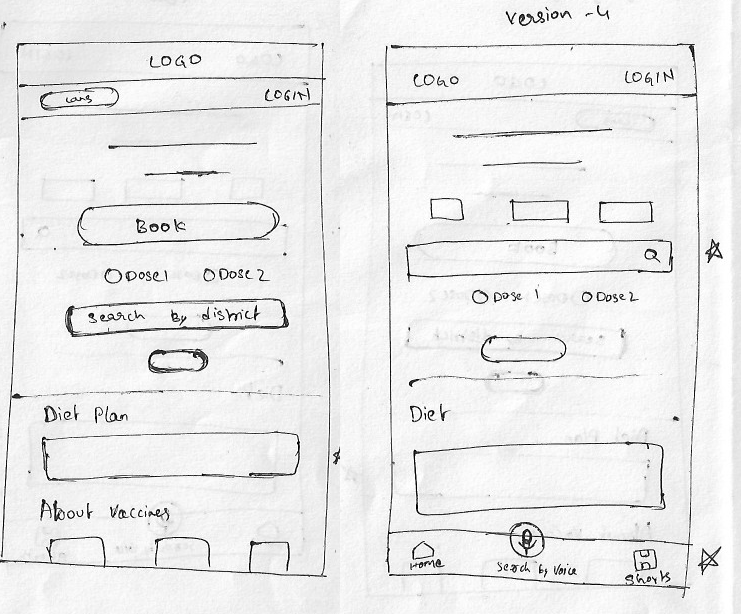 Version - 4
LOGO
Lang
LOGIN
Book
Dose 1
Dose 2
Search by district
Diet Plan
About Vaccines
LOGO
LOGIN
Dose 1
Dose 2
Diet
Home
Search by Voice
Shorts